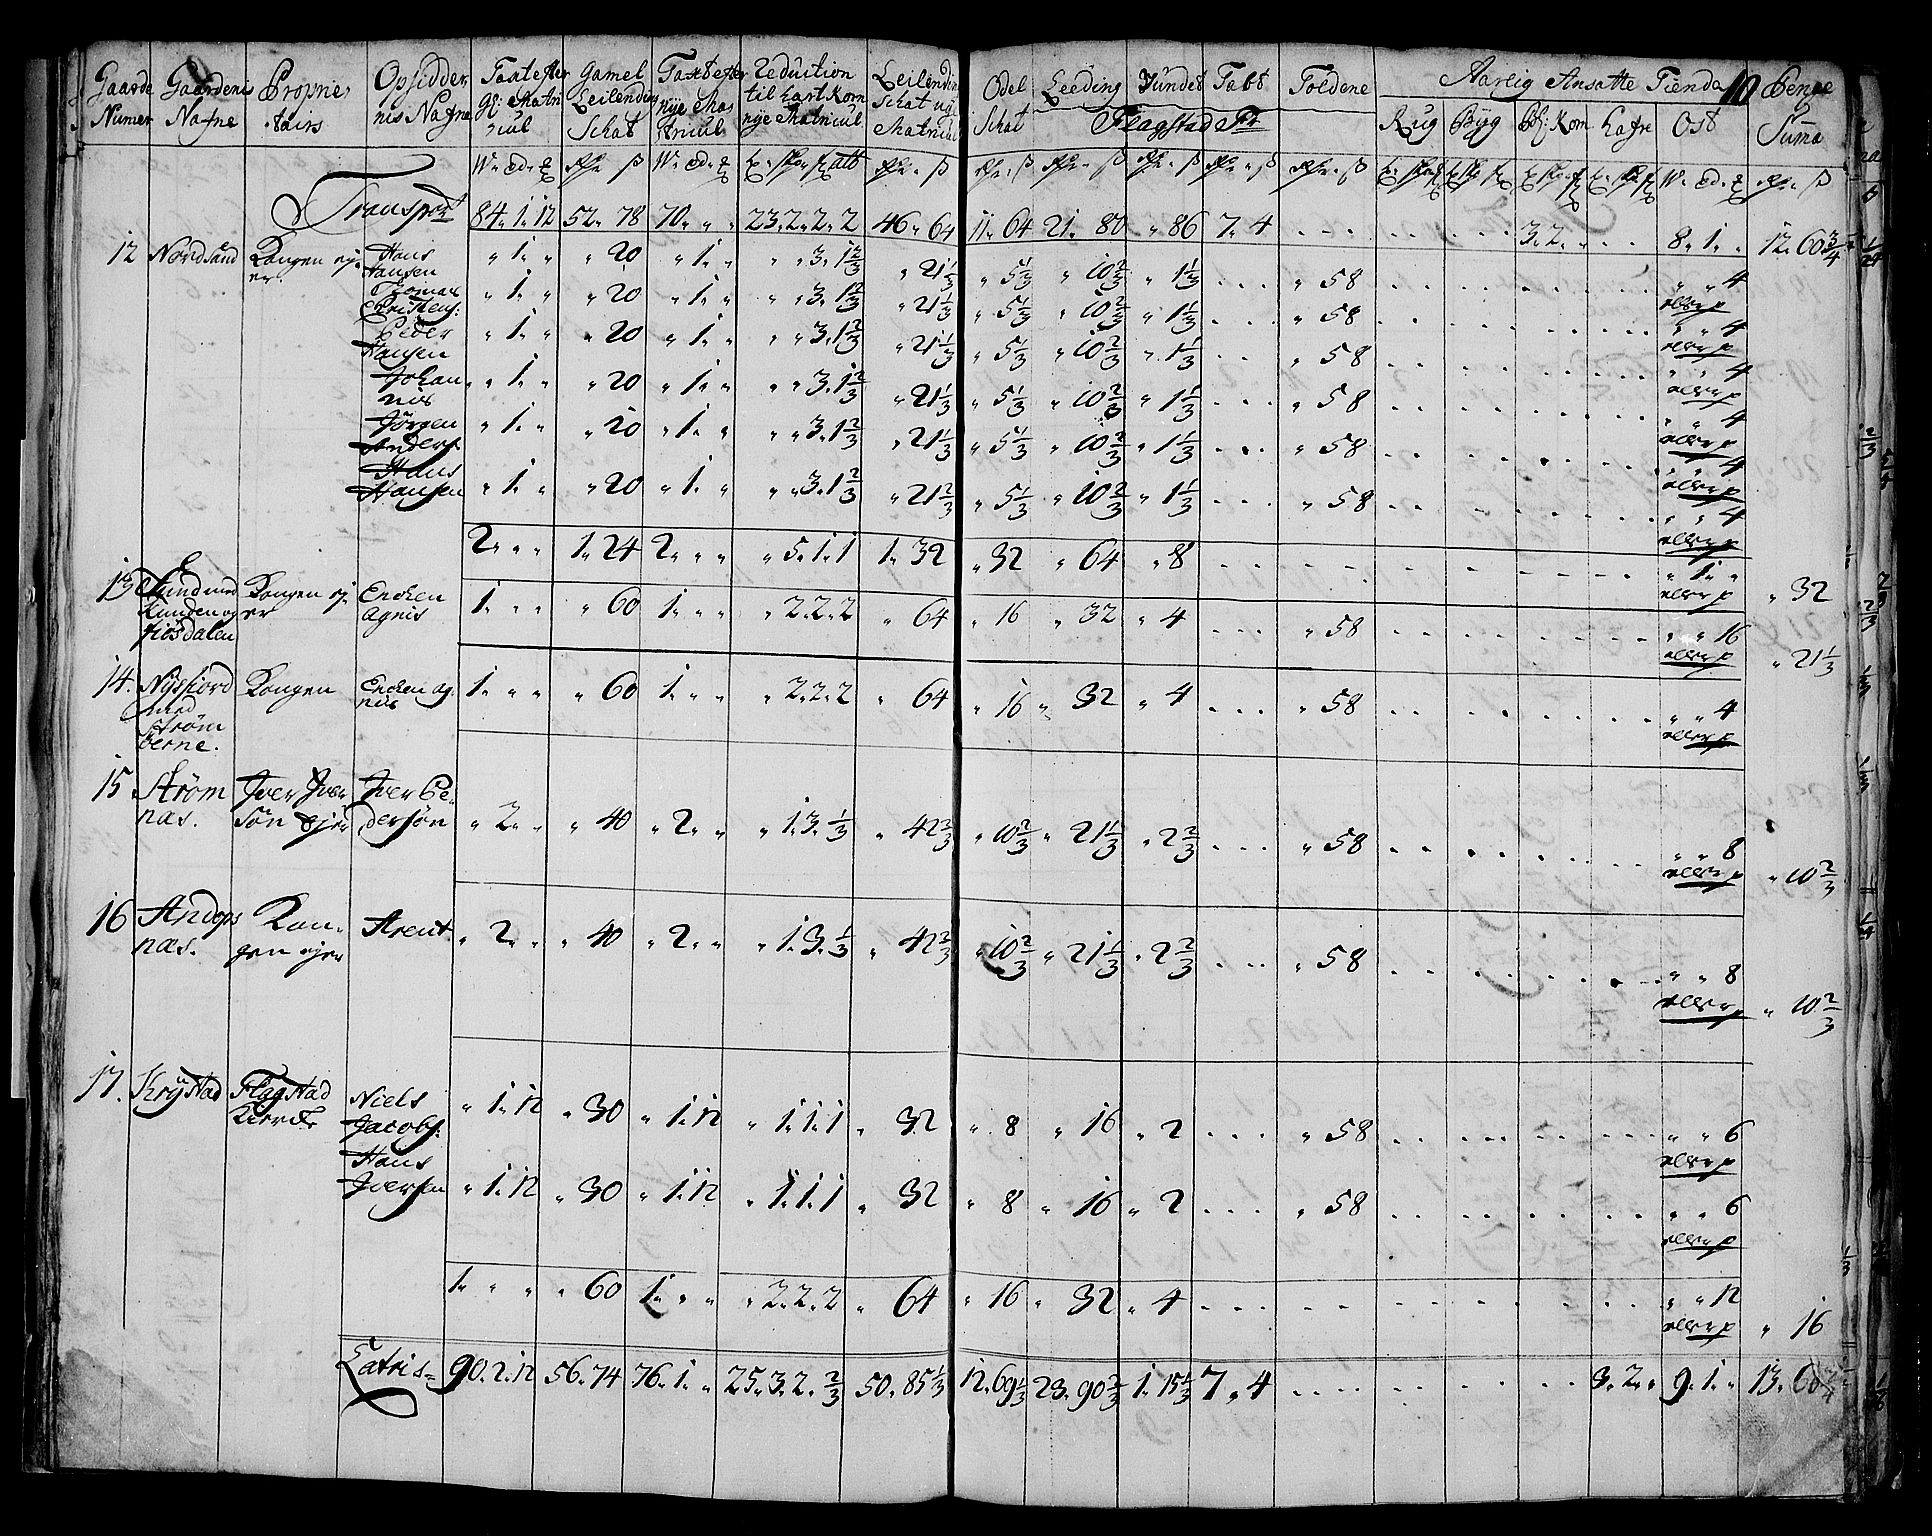 Gaarde Numer | Gaardens Nafne | Proprietairs | Opsiddernis Nafne | Taxt efter Gl: Matricul | Gamel Leilending Schat | Taxt efter nye Matricul | Reduction til hartKorn nye Matricul | Leilending Schat ny Matricul | Odel Schat | Leeding | Wundet | Tabt | Toldene | Aarlig Ansatte Tiende | Penge Summa
Flagstad | Rug | Byg | Bl: Korn | hafre | Ost
10
Transport 84. 1. 12 52. 78 70. " . 23. 2. 2. 2 46. 64 11. 64 21. 80 " 86 7. 4 3. 2. 8. 1. 12. 60 3/4
12 Nordsand Kongen ejer Hans Hansen " 1. " " 20 " 1. " " " 3. 1 2/3 " 21 1/3 " 5 1/3 " 10 2/3 " 1 1/3 . . . " 58 " " 4
Thomas Christens: " 1. " " 20 " 1. " " " 3. 1 2/3 " 21 1/3 " 5 1/3 " 10 2/3 " 1 1/3 . . . " 58 " " 4
Peder Hansen " 1. " " 20 " 1. " " " 3. 1 2/3 " 21 1/3 " 5 1/3 " 10 2/3 " 1 1/3 . . " 58 " " 4
Johannes " 1. " " 20 " 1. " " " 3. 1 2/3 " 21 1/3 " 5 1/3 " 10 2/3 " 1 1/3 . . . " 58 " " 4
Jörgen Anders: " 1. " " 20 " 1. " " " 3. 1 2/3 " 21 1/3 " 5 1/3 " 10 2/3 " 1 1/3 . . . " 58 " " 4
Hans Hansen " 1. " " 20 " 1. " " " 3. 1 2/3 " 21 2/3 " 5 1/3 " 10 2/3 " 1 1/3 . . . " 58 " " 4
2. " " 1. 24 2. " " " 5. 1. 1 1. 32 " 32 " 64 " 8 " 1. " " 32
13 Sund med Kunden og fiosdalen Kongen ejer Enchen Agnis 1. " " " 60 1. " " " 2. 2. 2 " 64 " 16 " 32 " 4 . . . " 58 " " 16 " 21 1/3
14. Nysfiord med Strømøerne. Kongen Enchen Agnis 1. " " " 60 1. " " " 2. 2. 2 " 64 " 16 " 32 " 4 . . . " 58 " " 4
15 Strømnæs. Iver Iversön ejer Iver Pedersön " 2. " " 40 " 2. " " 1. 3. 1/3 " 42 2/3 " 10 2/3 " 21 1/3 " 2 2/3 . . . " 58 " " 8 " 10 2/3
16 Andopsnæs. Kongen ejer Arent " 2. " " 40 " 2. " " 1. 3. 1/3 " 42 2/3 " 10 2/3 " 21 1/3 " 2 2/3 . . . " 58 " " 8 " 10 2/3
17. Krystad Flagstad Kircke Niels Jacobs: " 1. 12 " 30 " 1. 12 " 1. 1. 1 " 32 " 8 " 16 " 2 . . . " 58 " " 6
Hans Iversen " 1. 12 " 30 " 1. 12 " 1. 1. 1 " 32 " 8 " 16 " 2 . . . " 58 " " 6
1. " " " 60 1. " " " 2. 2. 2 " 64 " 16 " 32 " 4 " " 12 " 16
Lateris 90. 2. 12 56. 74 76. 1. " 25. 3. 2. 2/3 50. 85 1/3 12. 69 1/3 23. 90 2/3 1. 15 1/3 7. 4 3. 2. " 9. 1. " 13.